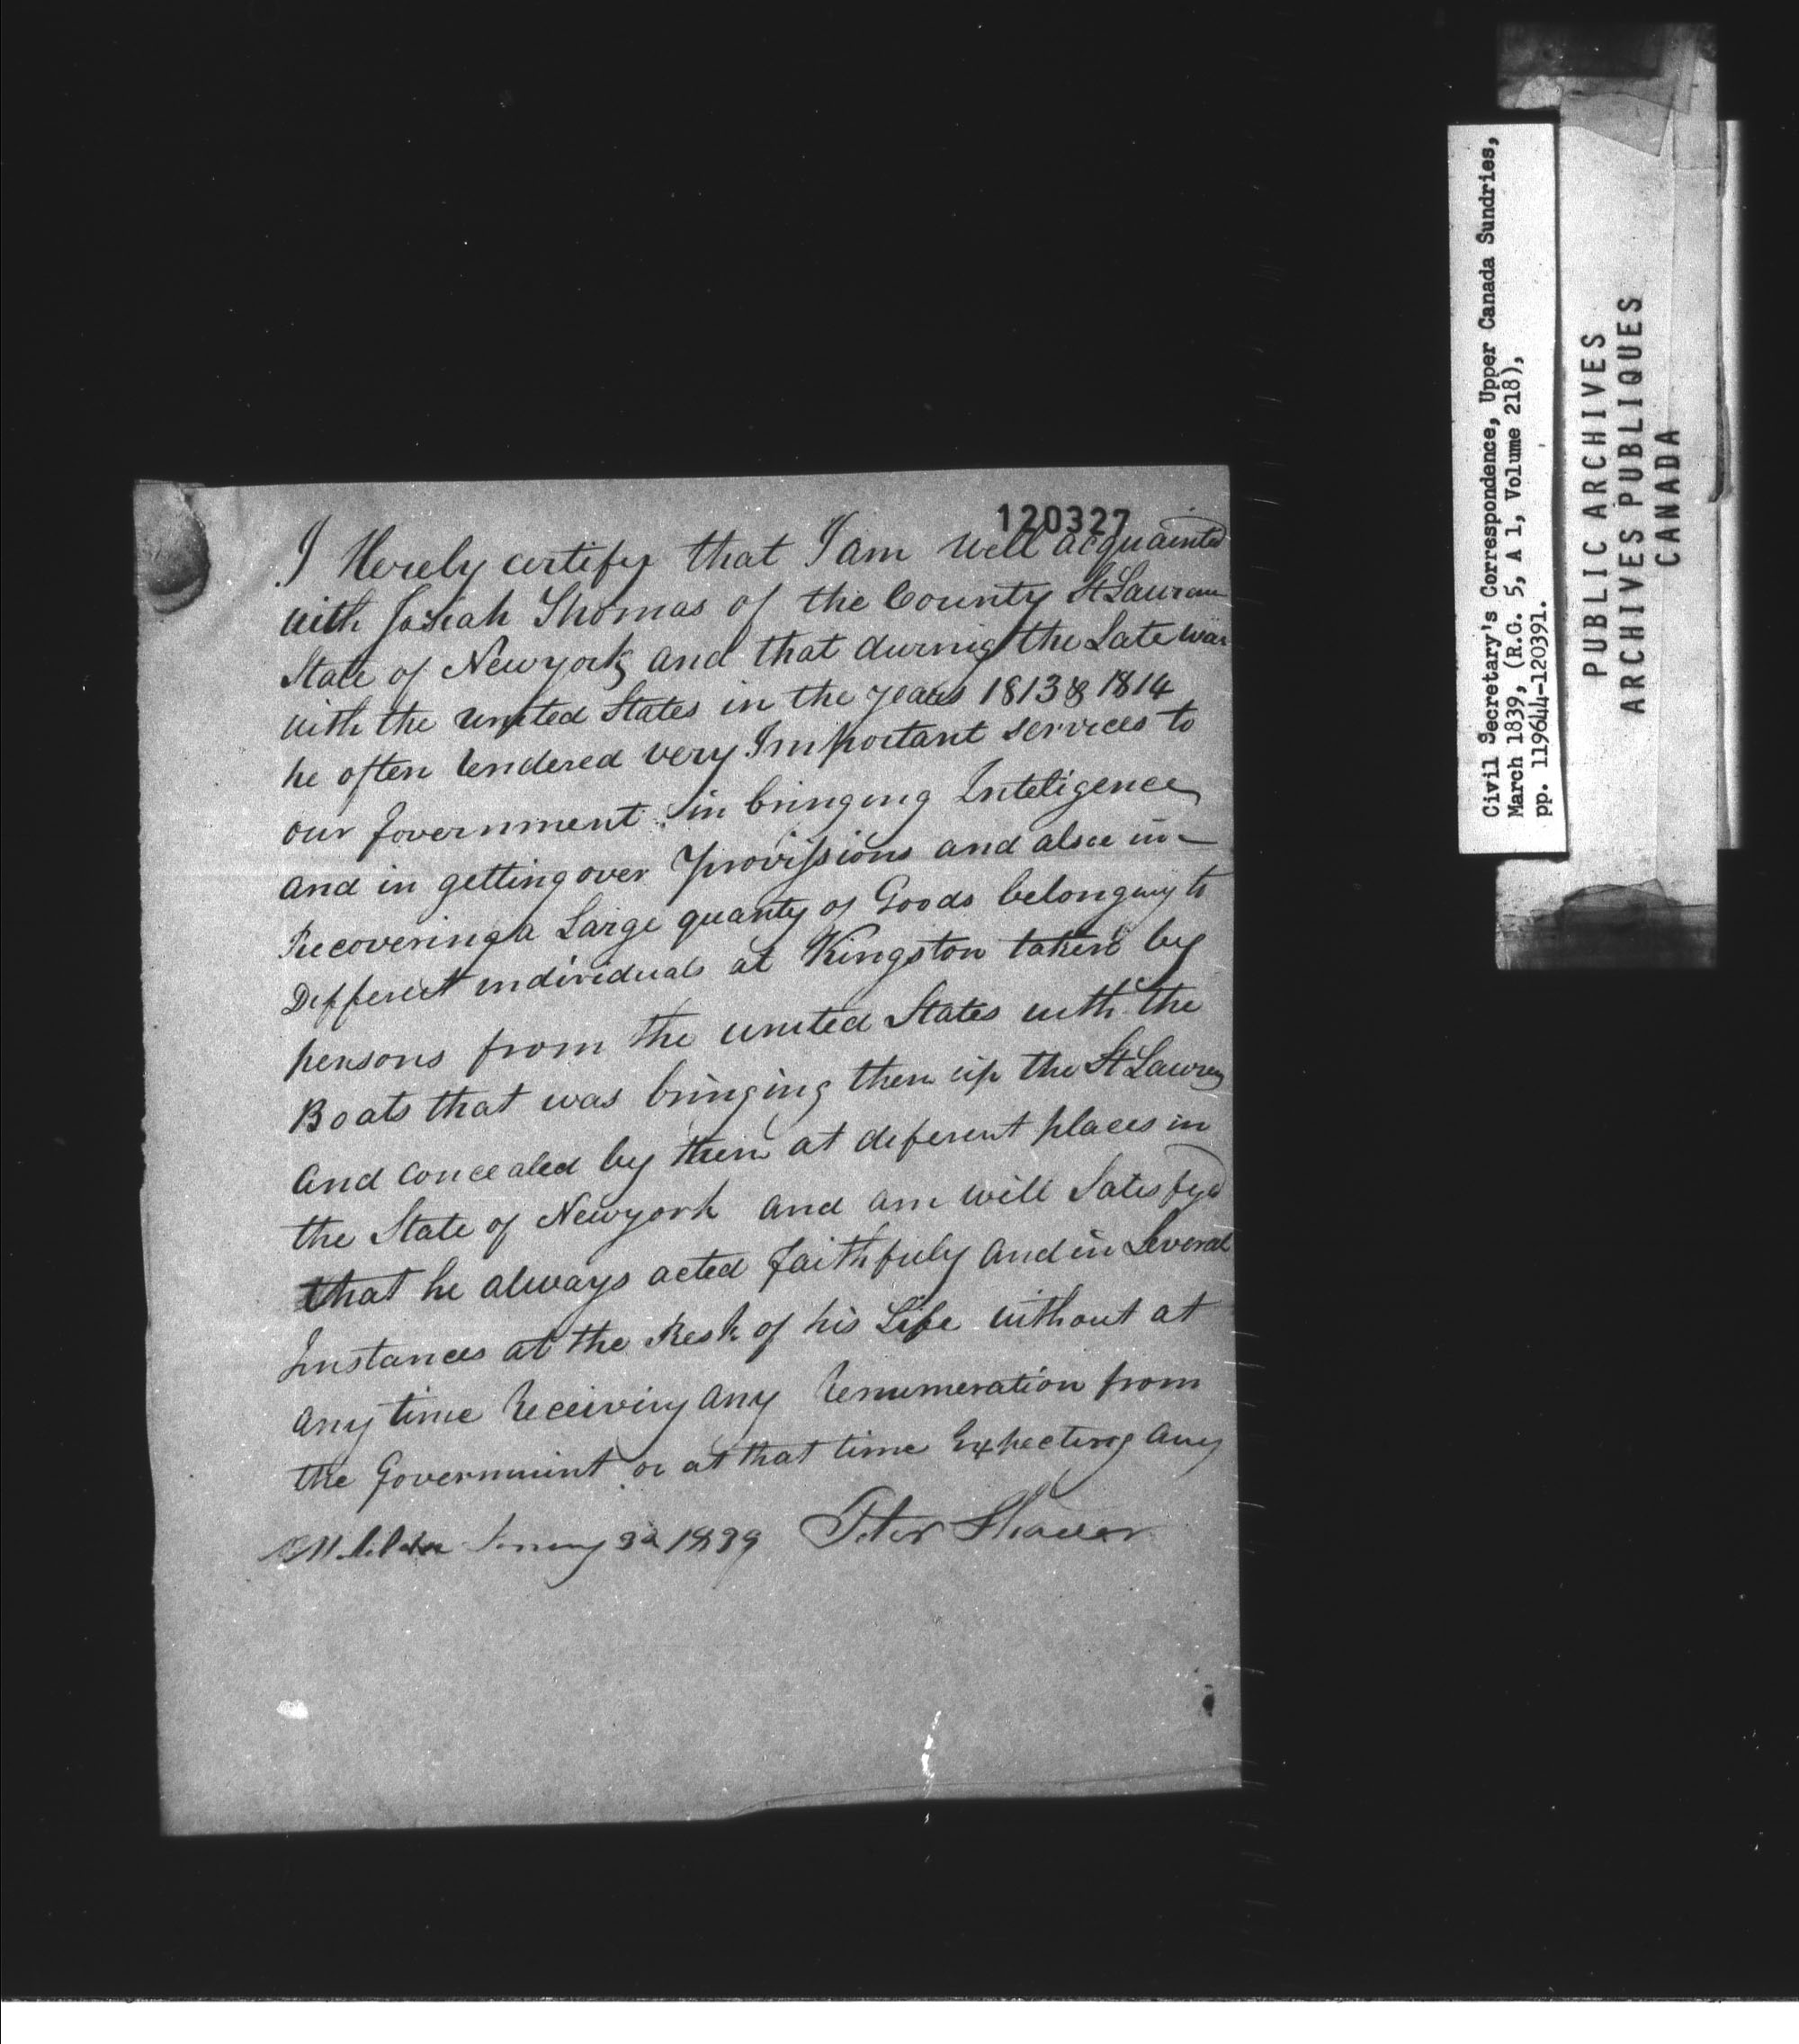 120327
I Hereby certify that I am well acquainted
with Josiah Thomas of the County St Lawran
State of Newyork and that during the Late war
with the united States in the years 1813 & 1814
he often Rendered very Important services to
our Government in bringing Inteligence
and in getting over Provissions and also in
Recovering a Large quanty of Goods belonging to
Different individuals at Kingston taken by
persons from the united States with the
Boats that was bringing them up the St Lawren
and concealed by them at deferent places in
the State of Newyork and am will Satisfyd
that he always acted faithfuly and in Several
Instances at the Resk of his Life without at
any time Receiving any Renumeration from
the Government or at that time Expecting any
January 1839 Peter Shaver
Civil Secretary's Correspondence, Upper Canada Sundries,
March 1839, (R.G. 5, A 1, Volume 218),
pp. 119644-120391.
PUBLIC ARCHIVES
ARCHIVES PUBLIQUES
CANADA